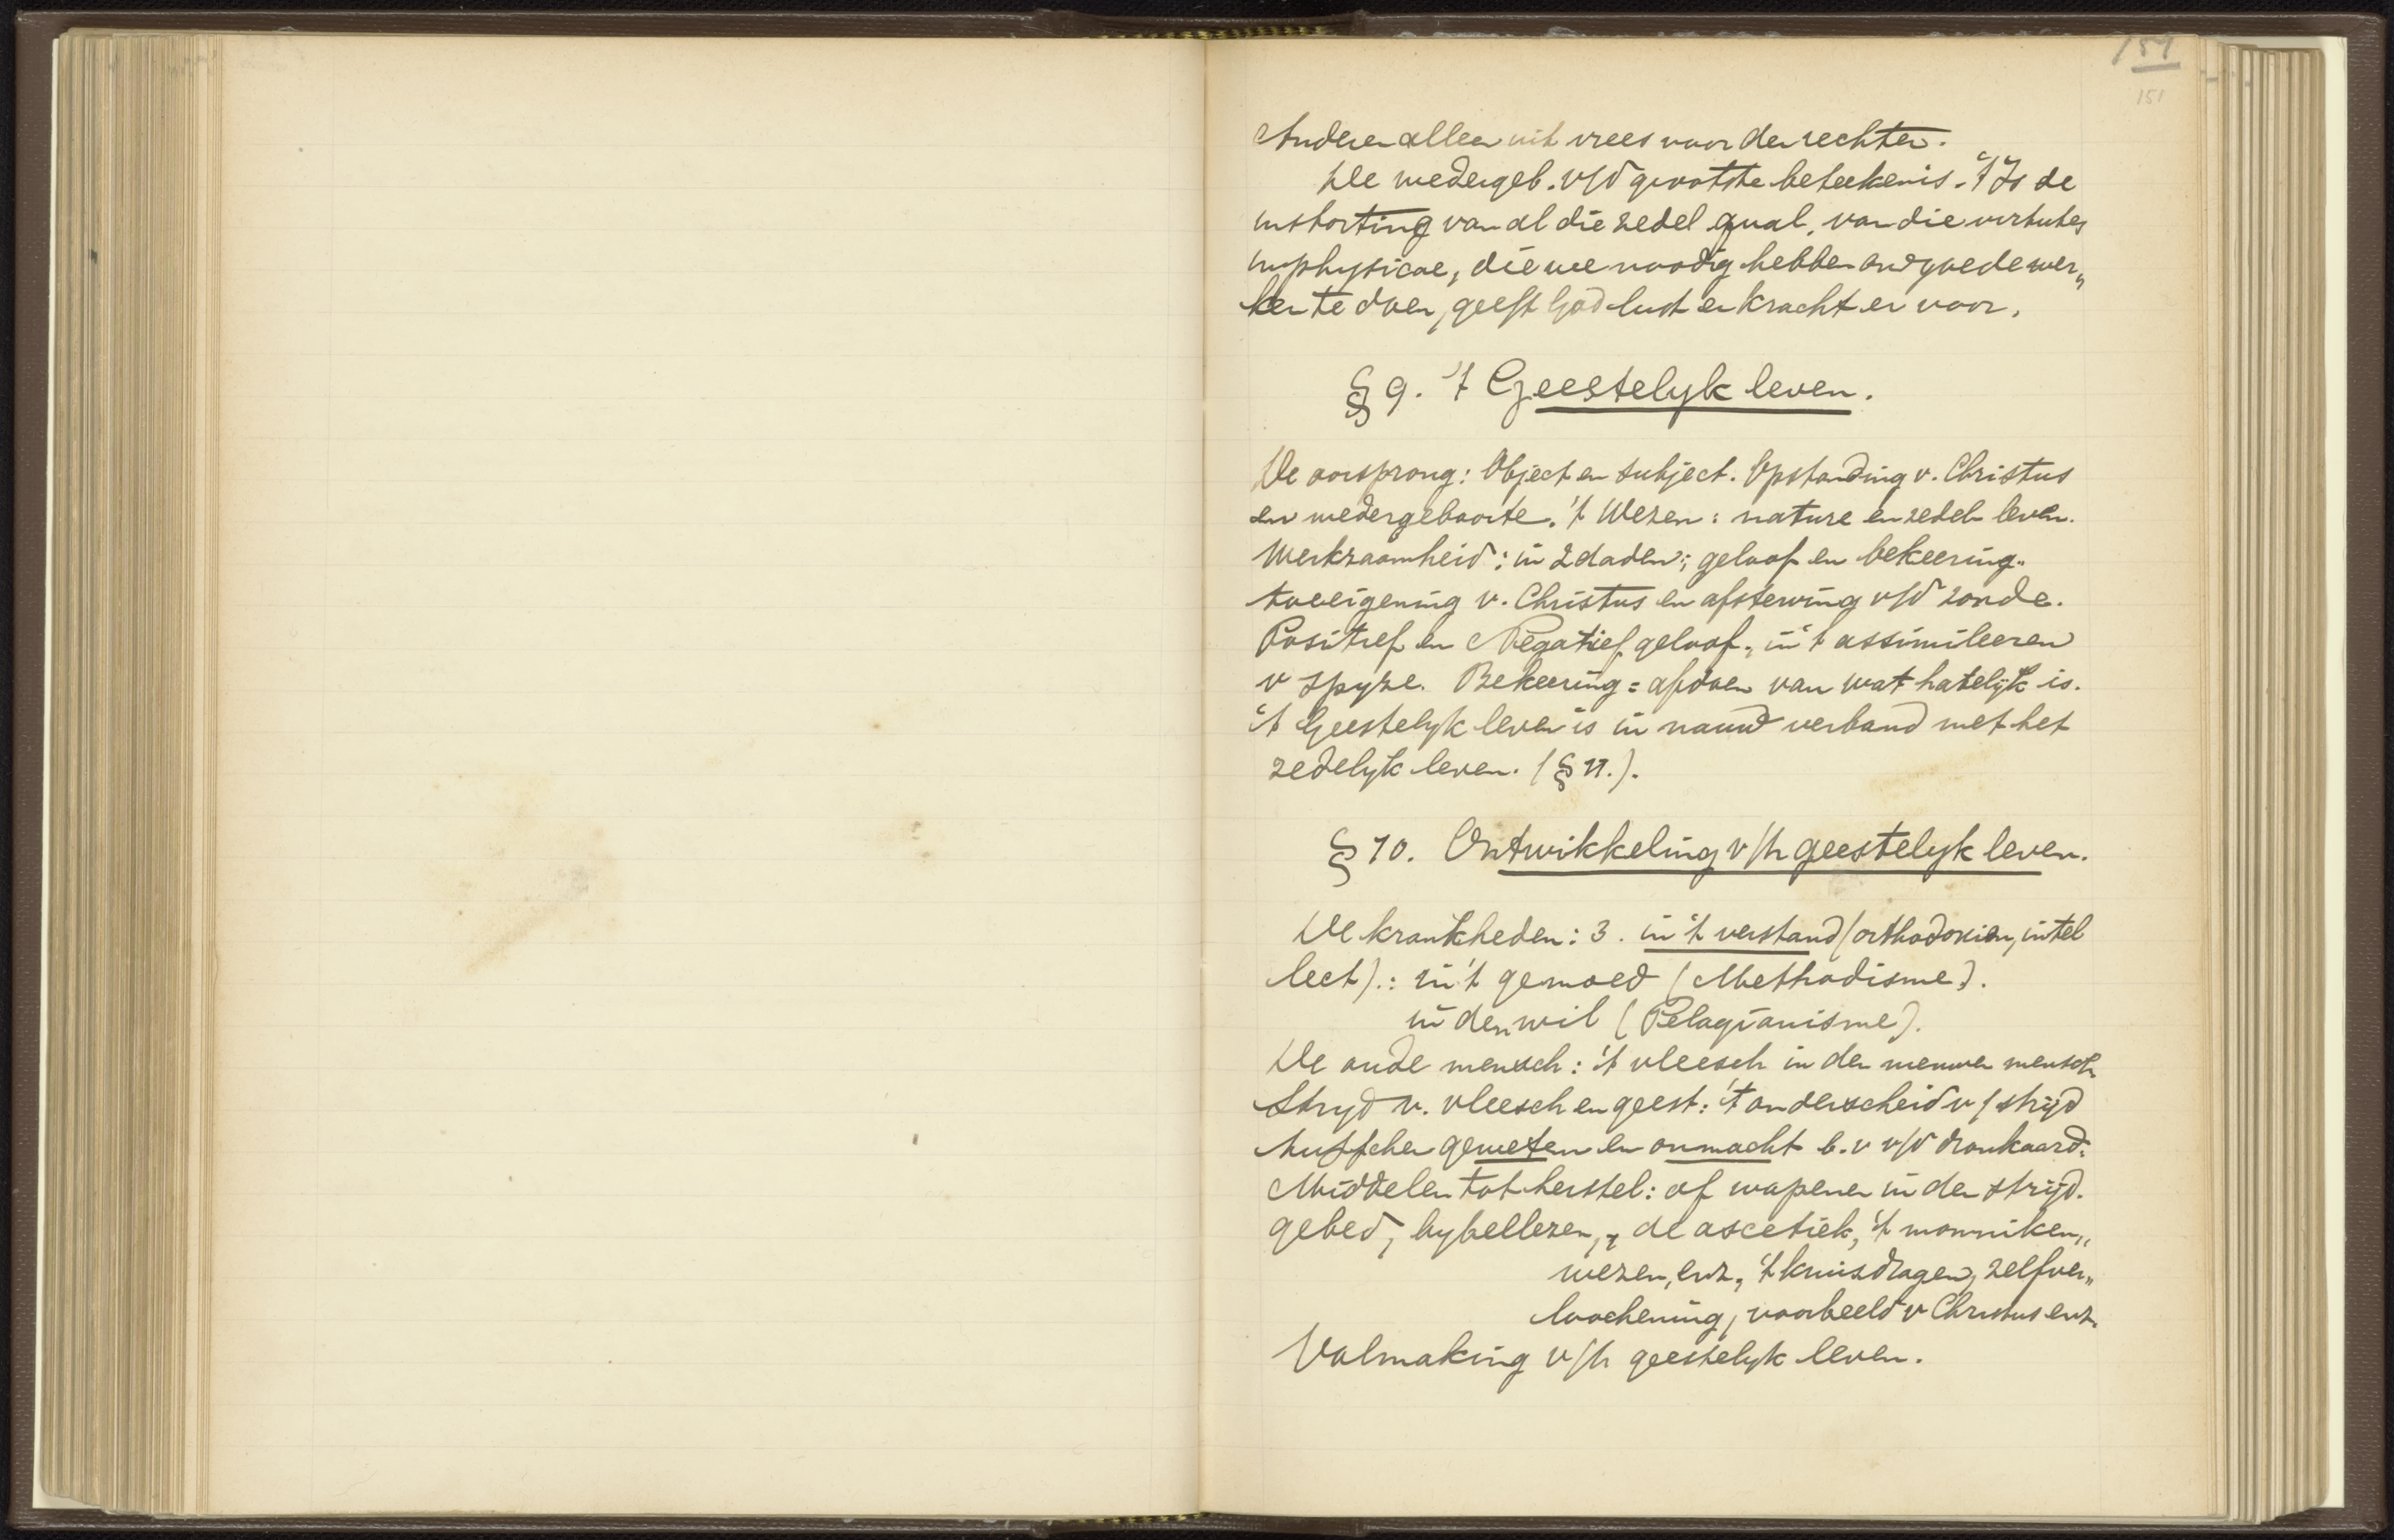 151
151
Anderen alleen uit vrees voor den rechter.
De wedergeb. v/d grootste beteekenis. 't Is de
instorting van al die zedel qual. van die virtutes
hyperphysicae, die we noodig hebben om goede wer„
ken te doen, geeft God lust en kracht er voor.
§ 9. 't Geestelyk leven.
De oorsprong: Object en subject. Opstanding v. Christus
en wedergeboorte. 't Wezen: nature en zedel. leven.
Werkzaamheid: in 2 daden; geloof en bekeering.
toeeigening v. Christus en afsterving v/d zonde.
Positief en Negatief geloof, in 't assimileeren
v spyze. Bekeering = afdoen van wat hatelijk is.
't Geestelyk leven is in nauw verband met het
zedelyk leven. (§ 11.).
§ 10. Ontwikkeling v/h geestelyk leven.
De krankheden: 3. in 't verstand (orthodoxien, intel
lect).: in 't gemoed (Methodisme).
in den wil (Pelagianisme).
De oude mensch: 't vleesch in den nieuwen mensch.
Stryd v. vleesch en geest: 't onderscheid v/ strijd
tusschen geweten en onmacht b.v v/d dronkaard.
Middelen tot herstel: of wapenen in den strijd.
gebed, bybellezen, de ascetiek, 't monniken„
wezen, enz., 't kruisdragen, zelfver„
loochening, voorbeeld v Christus enz.
Volmaking v/h geestelyk leven.